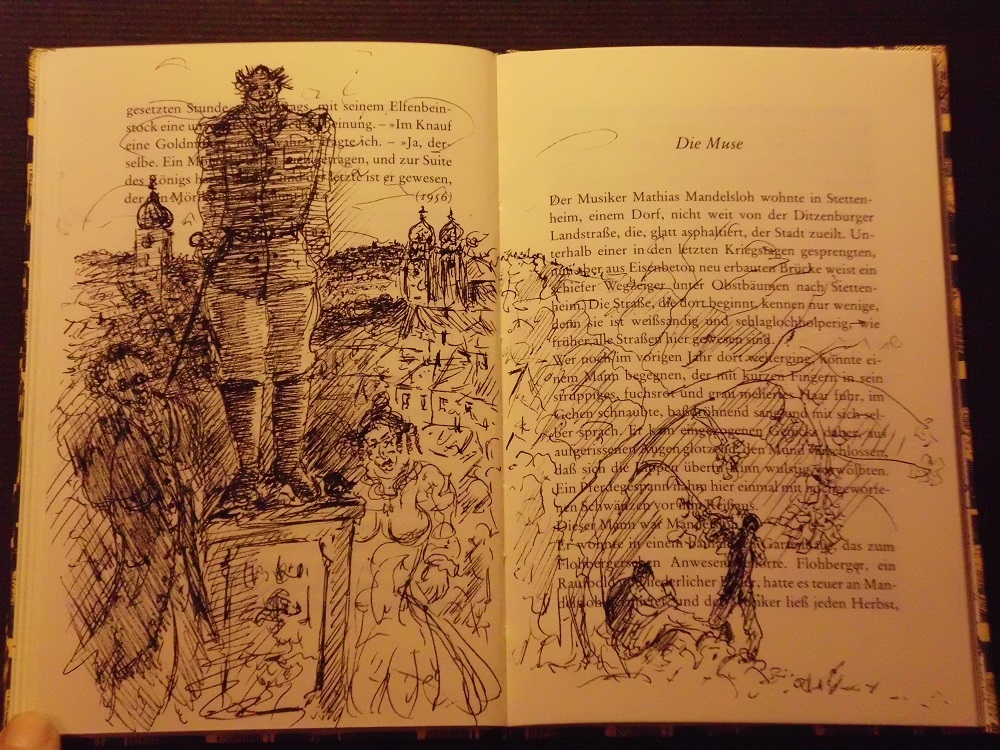 gesetzten Stunde mit seinem Elfenbein-
stock eine un einung. – »Im Knauf
eine Goldm agte ich. – »Ja, der-
selbe. Ein getragen, und zur Suite
des Königs letzte ist er gewesen,
der (1956)
Die Muse
Der Musiker Mathias Mandelsloh wohnte in Stetten-
heim, einem Dorf, nicht weit von der Ditzenburger
Landstraße, die, glatt asphaltiert, der Stadt zueilt. Un-
terhalb einer in den letzten Kriegstagen gesprengten,
nun aber aus Eisenbeton neu erbauten Brücke weist ein
schiefer Wegzeiger unter Obstbäumen nach Stetten-
heim. Die Straße, die dort beginnt, kennen nur wenige,
denn sie ist weißsandig und schlaglochholperig, wie
früher alle Straßen hier gewesen sind.
Wer noch im vorigen Jahr dort weiterging, konnte ei-
nem Mann begegnen, der mit kurzen Fingern in sein
struppiges, fuchsrot und grau meliertes Haar fuhr, im
Gehen schnaubte, baßdröhnend sang und mit sich sel-
ber sprach. Er kam eingezogenen Genicks daher, aus
aufgerissenen Augen glotzend, den Mund verschlossen,
daß sich die Lippen überm Kinn wulstig vorwölbten.
Ein Pferdegespann nahm hier einmal mit hochgeworfe-
nen Schwänzen vor ihm Reißaus.
Dieser Mann war Mandelsloh
Er wohnte in einem Gartenhaus, das zum
Flohbergerschen Anwesen gehörte. Flohberger, ein
Raufbold liederlicher hatte es teuer an Man-
delsloh vermietet, und der Musiker ließ jeden Herbst,